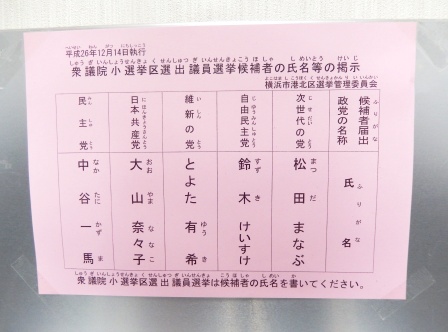 平成26年12月14日執行
衆議院小選挙区選出議員選挙候補者の氏名等の掲示
横浜市港北区選挙管理委員会
候補者届出政党の名称
氏名
次世代の党
松田 まなぶ
自由民主党
鈴木 けいすけ
維新の党
とよた 有希
日本共産党
大山 奈々子
民主党
中谷 一馬
衆議院小選挙区選出議員選挙は候補者の氏名を書いてください。